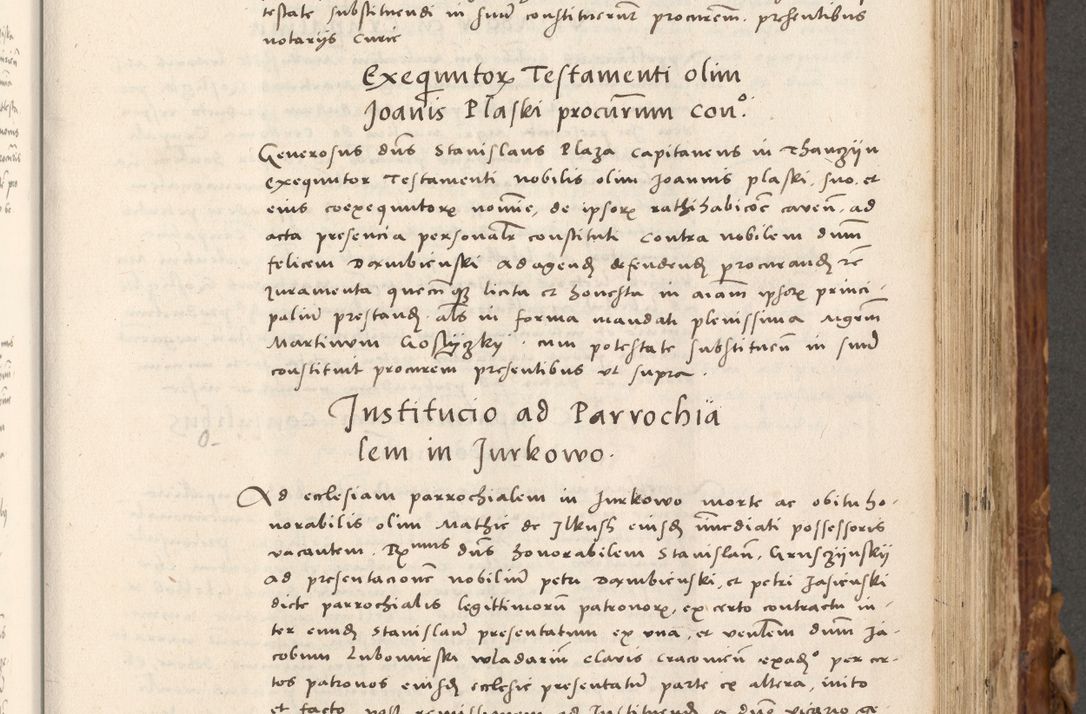 testate substituendi in suum constituerunt procurem. presentibus
notariis Curie
Exequutorum Testamenti olim
Joannis Plaski procurum con°.
Generosus dns Stanislaus Plaza Capitaneus in
exequutor Testamenti nobilis olim Joannis plaski, suo et
eius coexequutorum nomine, de ipsorum rathihabicoe caven. ad
acta presencia personalr constitutus Contra nobilem dnum
felicem Dambienski ad agend defendend procurand re
Juramenta quecunque licita et honesta in aiam ipsorum princi-
palium prestand als in forma mandati plenissima Mgrum
Martinum cum potestate substituen in suum
constituit procurem presentibus ut supra.
Institucio ad Parrochia
lem in Jurkowo.
0-
Ad ecclesiam parrochialem in Jurkowo morte ac obitu ho-
norabilis olim Mathie de Ilkush eiusd immediati possessoris
vacantem. Rmus dns honorabilem Stanislaum Gruszijnskij
ad presentacionem nobilium petri Dambienski, et petri Jasienski
dicte parrochialis legittimorum patronorum, ex certo contractu in-
ter eund Stanislaum presentatum ex una, et venlem dnum Ja-
cobum Lubomirski wladarium Claris Cracovien exad° per cer-
tos patronos eiusd ecclesie presentatum parte ex altera, inito
et facto post ad Instituend a dno vicario